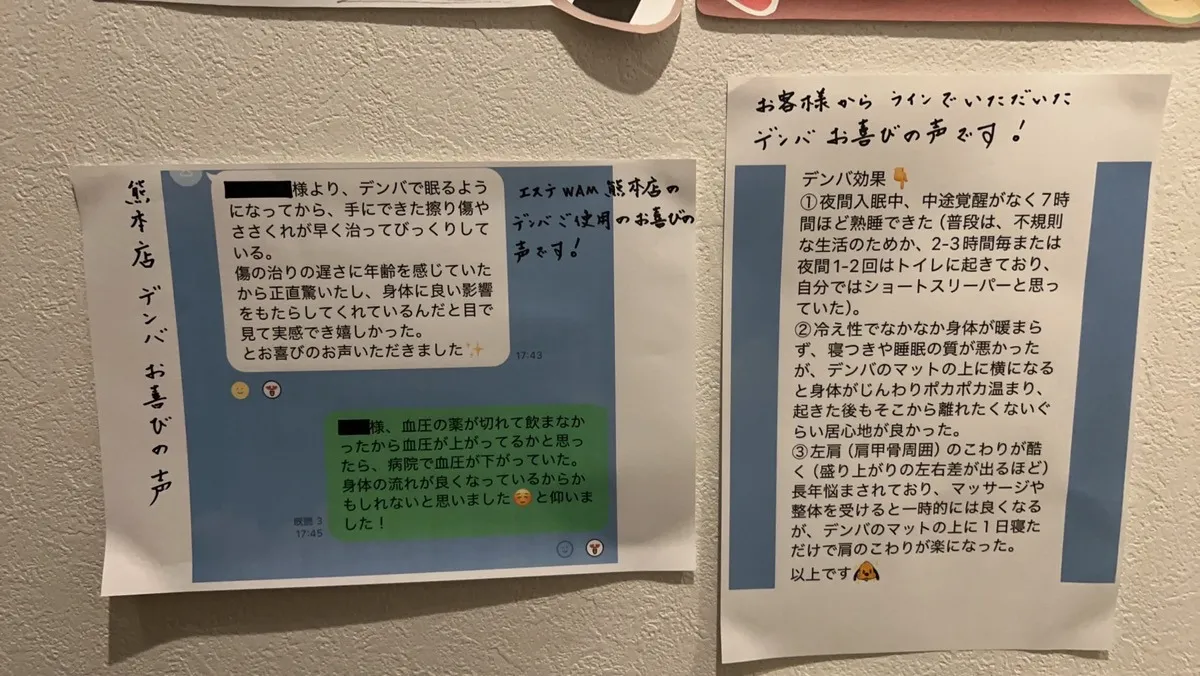 熊本店 デンバ お喜びの声
様より、デンバで眠るよう
になってから、手にできた擦り傷や
ささくれが早く治ってびっくりして
いる。
傷の治りの遅さに年齢を感じていた
から正直驚いたし、身体に良い影響
をもたらしてくれているんだと目で
見て実感でき嬉しかった。
とお喜びのお声いただきました✨
17:43
エステWAM熊本店の
デンバご使用のお喜びの
声です!
様、血圧の薬が切れて飲まなか
ったから血圧が上がってるかと思っ
たら、病院で血圧が下がっていた。
身体の流れが良くなっているからか
もしれないと思いました☺️と仰いま
した!
既読 3
17:45
お客様から ラインでいただいた
デンバ お喜びの声です!
デンバ効果👇
①夜間入眠中、中途覚醒がなく7時
間ほど熟睡できた(普段は、不規則
な生活のためか、2-3時間毎または
夜間1-2回はトイレに起きており、
自分ではショートスリーパーと思っ
ていた)。
②冷え性でなかなか身体が暖まら
ず、寝つきや睡眠の質が悪かった
が、デンバのマットの上に横になる
と身体がじんわりポカポカ温まり、
起きた後もそこから離れたくないぐ
らい居心地が良かった。
③左肩(肩甲骨周囲)のこわりが酷
く(盛り上がりの左右差が出るほど)
長年悩まされており、マッサージや
整体を受けると一時的には良くなる
が、デンバのマットの上に1日寝た
だけで肩のこわりが楽になった。
以上です🐶